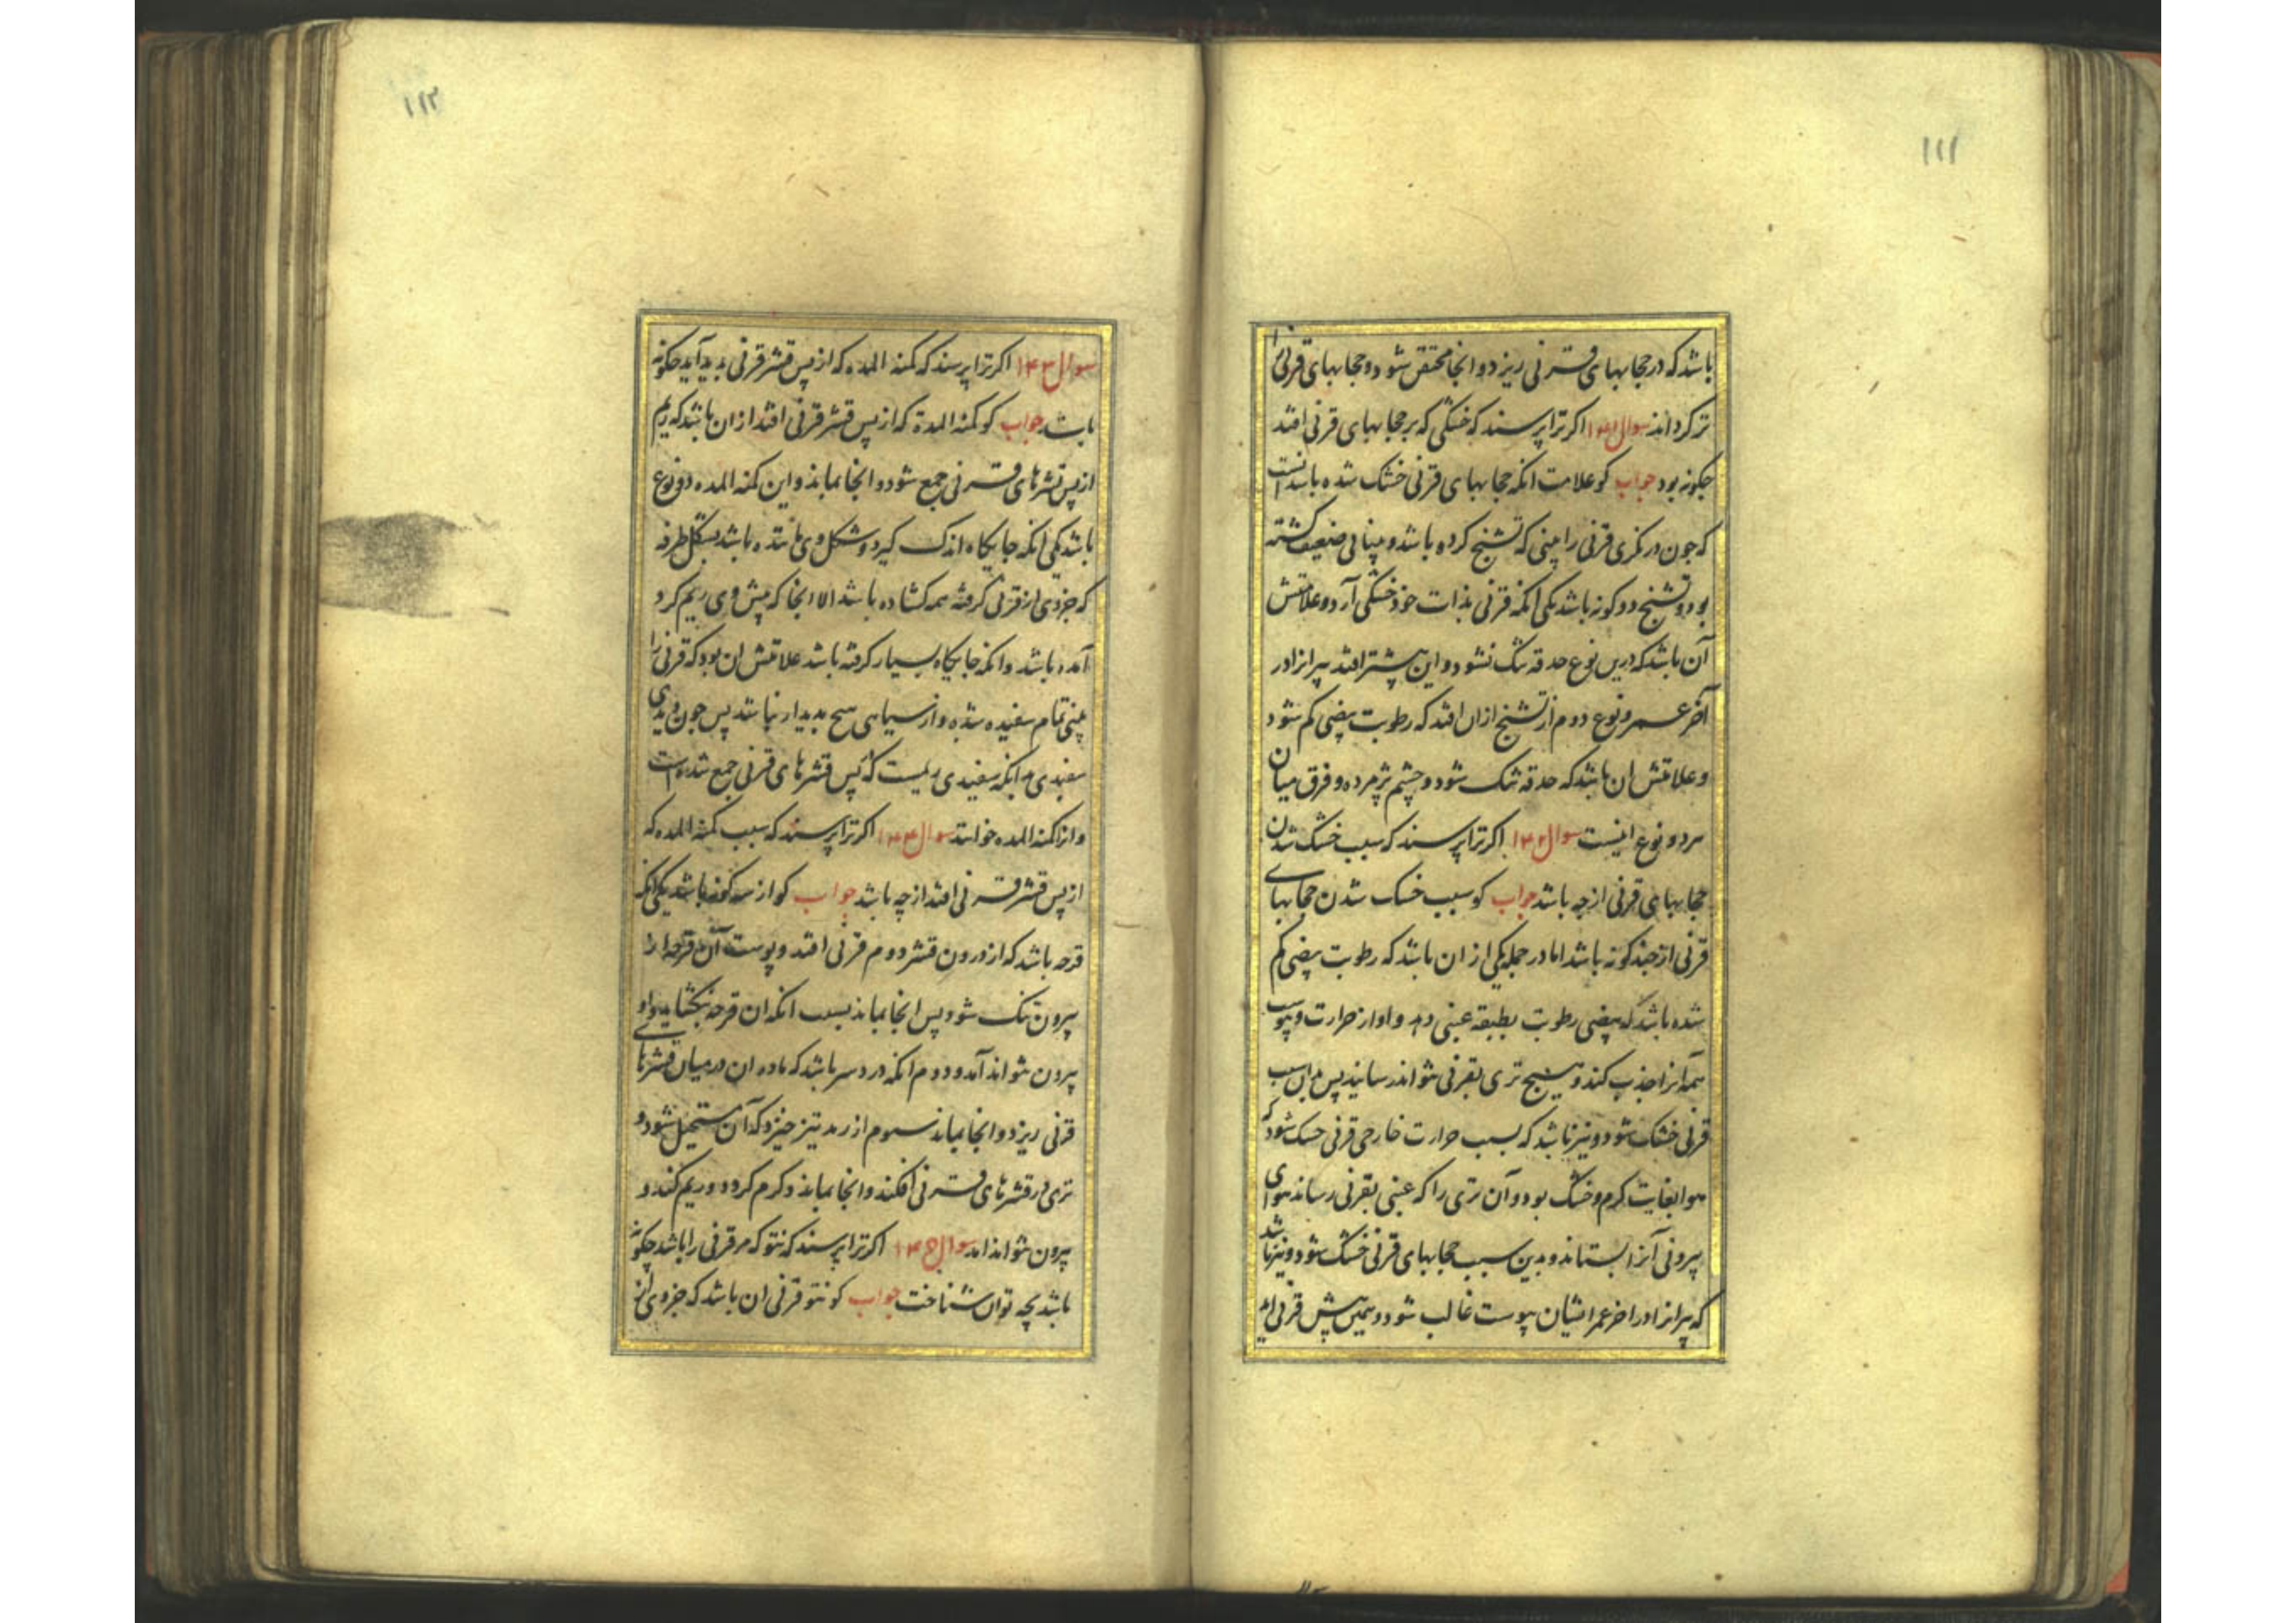 ۱۱۱
باشد که در حجابهای قرنی ریزد و انجا محتقن شود و حجابهای قرنی را
تر کرداند سوال ۱۴۱ اکر ترا پرسند که خشکی که بر حجابهای قرنی افتد
چکونه بود جواب کو علامت انکه حجابهای قرنی خشک شده باشد انست
که جون در نکری قرنی را بینی که تشنج کرده باشد و بینائی ضعیف کشته
بود و تشنج دو کونه باشد یکی انکه قرنی بذات خود خشکی آرد و علامتش
آن باشد که درین نوع حدقه تنک نشود و این بیشتر افتد پیرانرا در
آخر عمر و نوع دوم از تشنج ازان افتد که رطوبت بیضی کم شود
و علامتش ان باشد که حدقه تنک شود و چشم پژمرده و فرق میان
هر دو نوع اینست سوال ۱۴۲ اکر ترا پرسند که سبب خشک شدن
حجابهای قرنی از چه باشد جواب کو سبب خشک شدن حجابهای
قرنی از چند کونه باشد اما در جمله یکی از ان باشد که رطوبت بیضی کم
شده باشد که بیضی رطوبت بطبقه عنبی دهد و او از حرارت و یبوست
همه آنرا جذب کند و هیچ تری بقرنی نتواند رسانید پس بدان سبب
قرنی خشک شود و نیز باشد که بسبب حرارت خارجی قرنی خشک شود که
هوا بغایت کرم و خشک بود و آن تری را که عنبی بقرنی رساند هوای
بیرونی آنرا بستاند و بدین سبب حجابهای قرنی خشک شود و نیز باشد
که پیرانرا در اخر عمر ایشان یبوست غالب شود و همین پیش قرنی اید
۱۱۲
سوال ۱۴۳ اکر ترا پرسند که کمنه المده که از پس قشر قرنی بدید آید چکونه
باشد جواب کو کمنه المدة که از پس قشر قرنی افتد از ان باشد که ریم
از پس قشرهای قرنی جمع شود و انجا بماند و این کمنه المده دو نوع
باشد یکی انکه جایکاه اندک کیرد و شکل وی ماننده باشد بشکل ظرفه
که جزوی از قرنی کرفته همه کشاده باشد الا انجا که پیش وی ریم کرد
آمده باشد و انکه جایکاه بسیار کرفته باشد علامتش ان بود که قرنی را
بینی تمام سفیده شده و از سیاهی هیچ بدیدار نباشد پس جون دیدی
سفیدی بدانکه سفیدی ریمست که پس قشرهای قرنی جمع شده است
و انرا کمنه المده خوانند سوال ۱۴۴ اکر ترا پرسند که سبب کمنه المده که
از پس قشر قرنی افتد از چه باشد جواب کو از سه کونه باشد یکی انکه
قرحه باشد که از درون قشر دوم قرنی افتد و پوست آن قرحه را
بیرون تنک شود پس انجا بماند بسبب انکه ان قرحه نکشاید و او
بیرون نتواند آمد و دوم انکه درد سر باشد که ماده ان در میان قشرهای
قرنی ریزد و انجا بماند سیوم از رمد تیز خیزد که آن مستحیل شود و
تری در قشرهای قرنی افکند و انجا بماند و کرم کردد و ریم کند و
بیرون نتواند امد سوال ۱۴۵ اکر ترا پرسند که نتو که مر قرنی را باشد چکونه
باشد بچه توان شناخت جواب کو نتو قرنی ان باشد که جزوی از